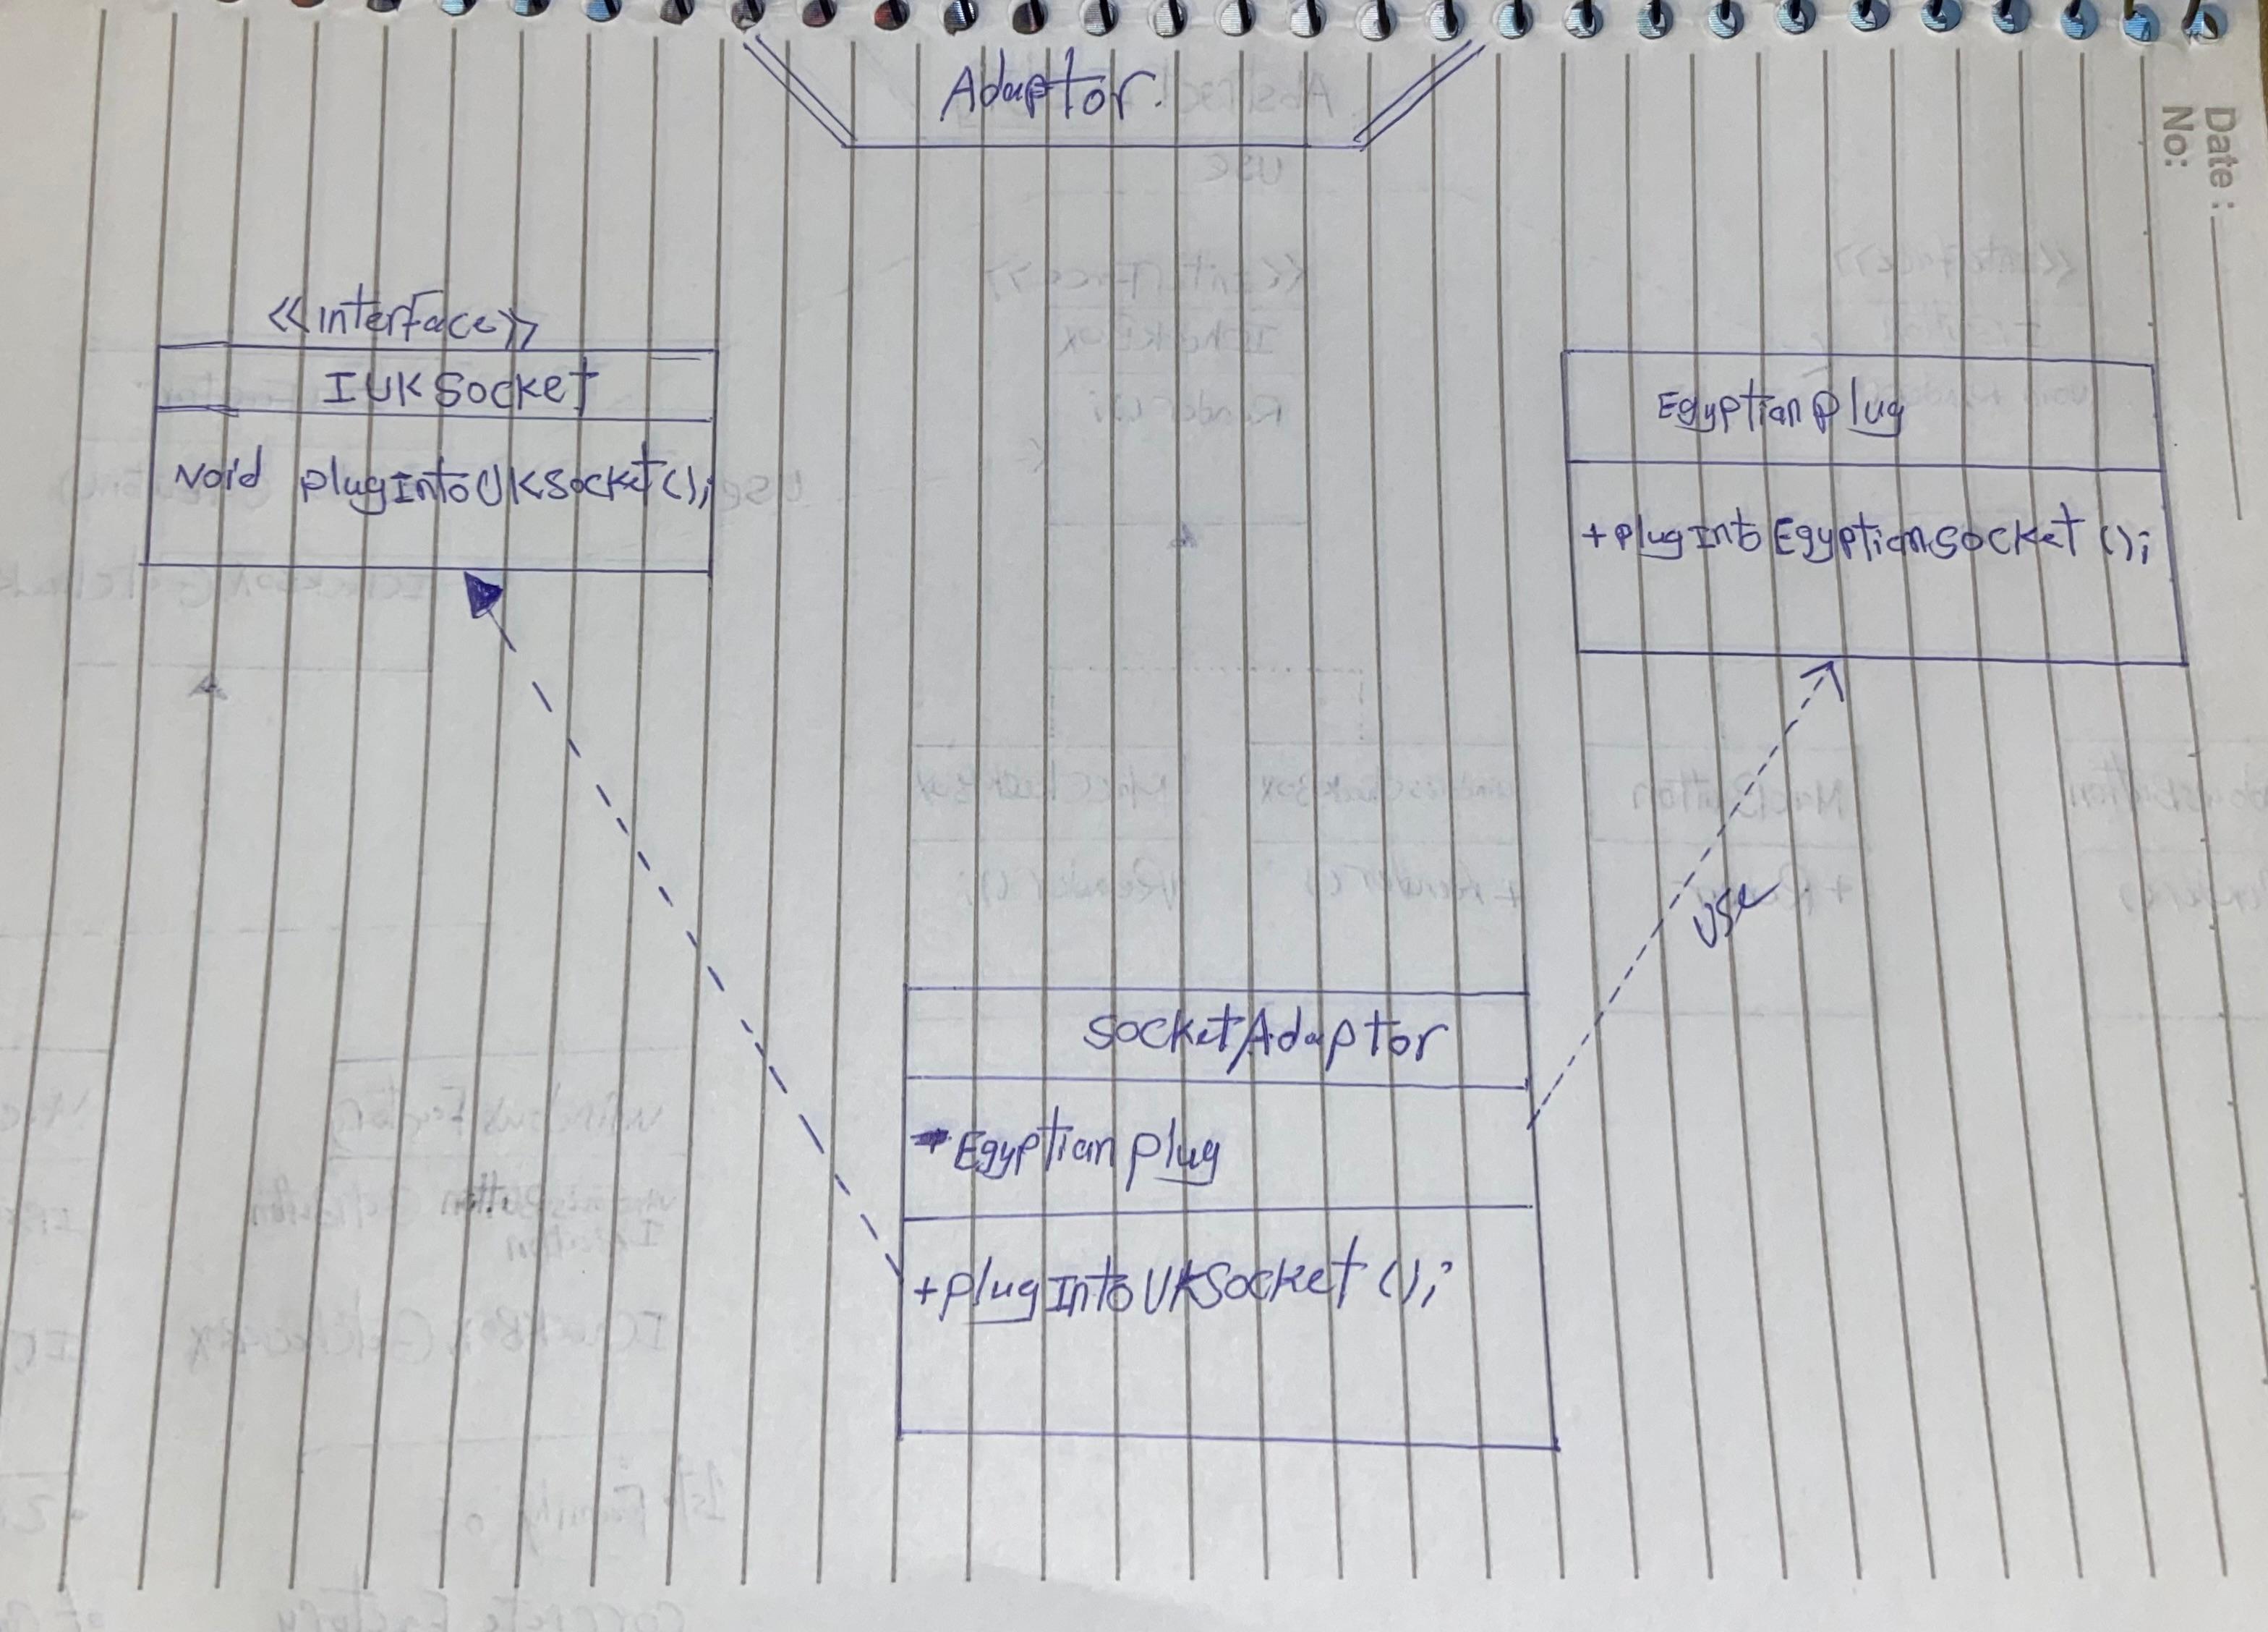 Adaptor.
Date:
No:
<<interface>>
IUKSocket
Void plugIntoUKSocket();
EgyptianPlug
+plugIntoEgyptianSocket();
use
SocketAdaptor
-EgyptianPlug
+plugIntoUKSocket();